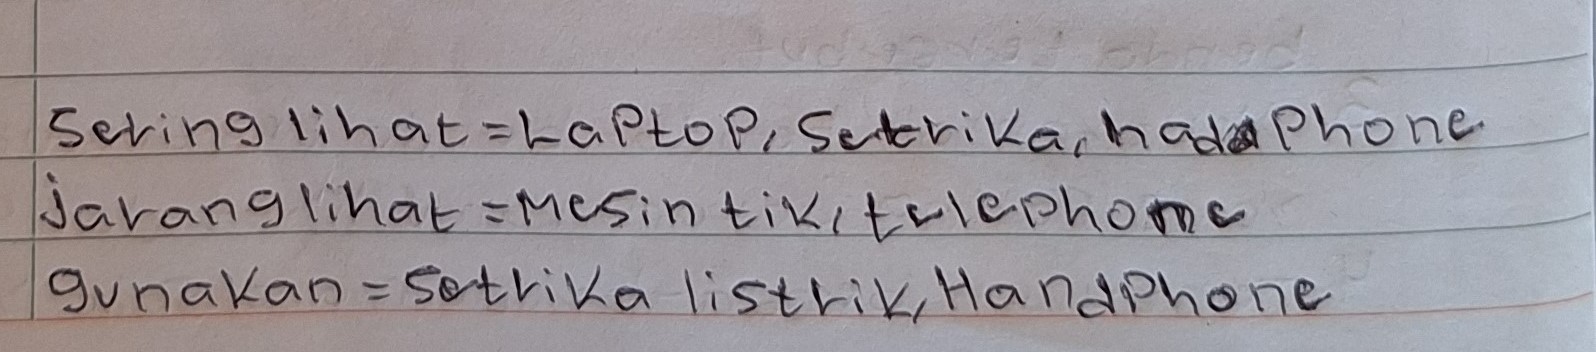 Sering lihat = Laptop, Setrika, hadphone
jarang lihat = Mesin tik, telephone
gunakan = Setrika listrik, Handphone